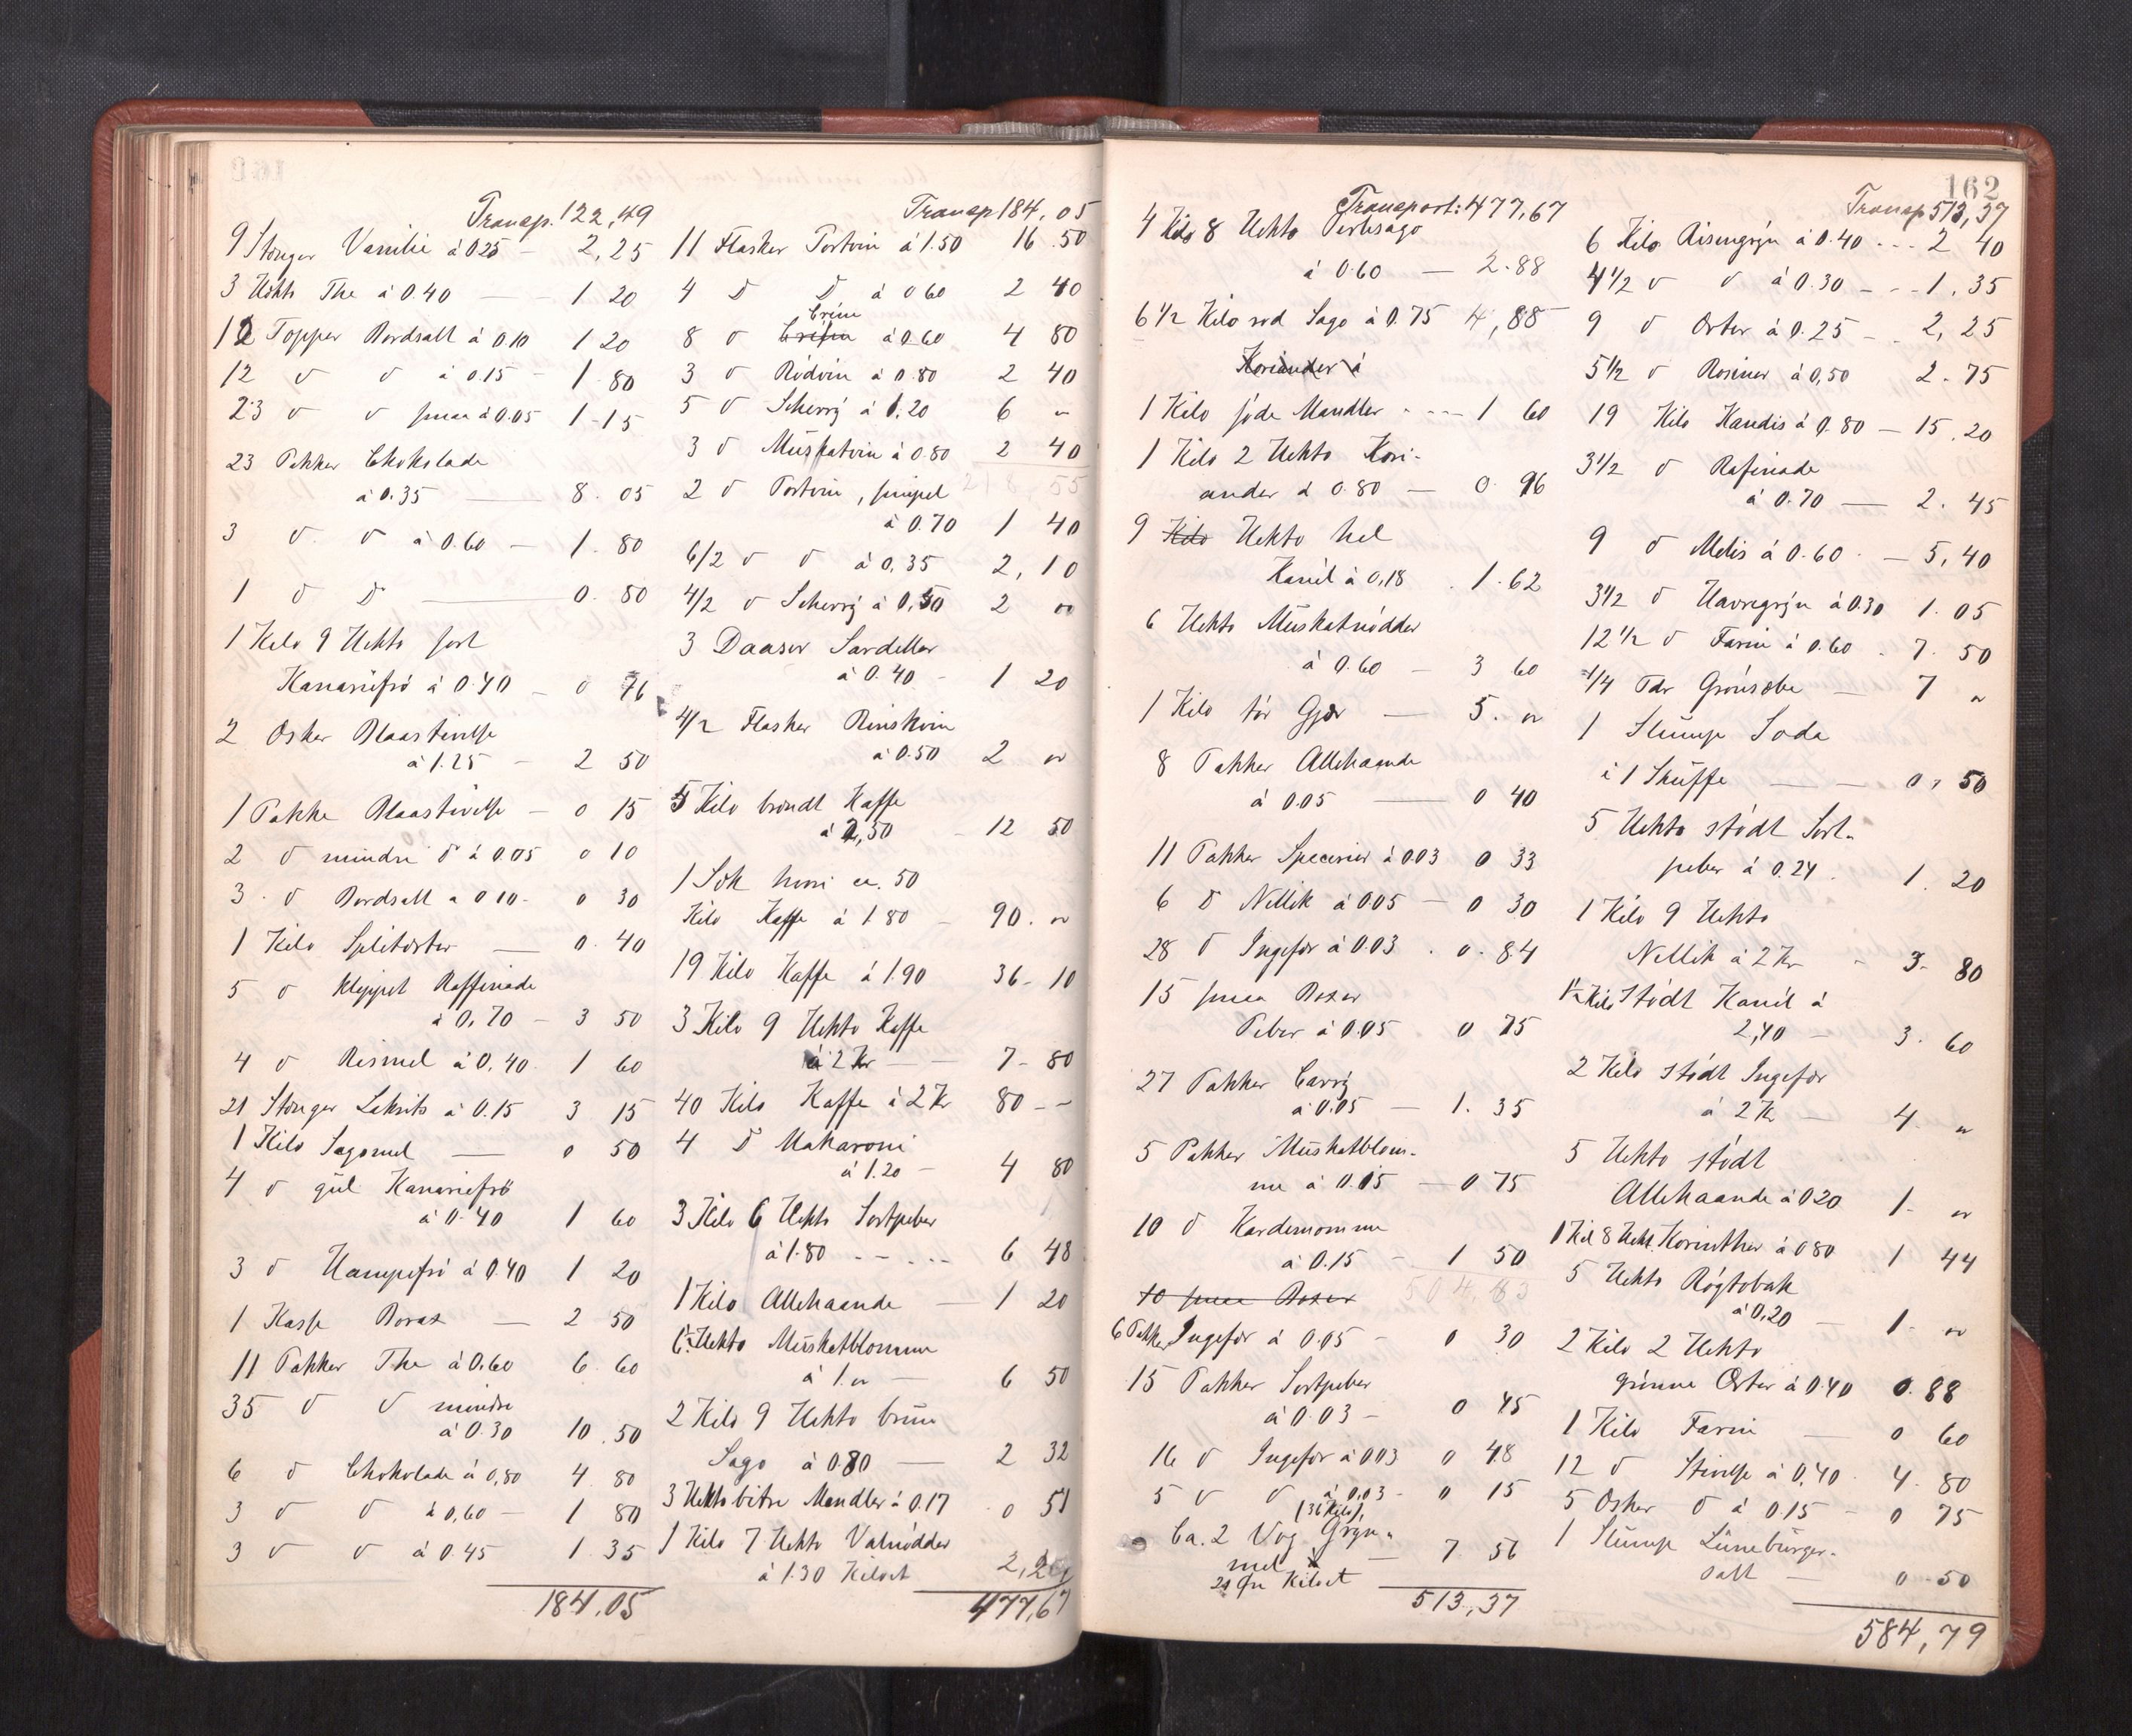 Transp. 122,49
9 Stænger Vanilie à 0.25 - 2,25
3 Hekto The à 0.40 - 1 20
12 Topper Bordsalt à 0.10 1 20
12 d d à 0.15 - 1.80
23 d d smaa à 0.05 1-15
23 Pakker Chokolade
à 0.35 - 8.05
3 d d à 0.60 - 1.80
1 d d - 0.80
1 Kilo 9 Hekto sort
Kanariefrö à 0.40 - 0 76
2 Æsker Blaastivelse
à 1.25 - 2 50
1 Pakke Blaastivelse - 0 15
2 d mindre d à 0.05 0 10
3 d Bordsalt à 0 10 - 0 30
1 Kilo Spliterter - 0.40
5 d klippet Raffinade
à 0.70 - 3 50
4 d Rismel à 0.40 1 60
21 Stænger Lakrits à 0.15 3 15
1 Kilo Sagomel - 0 50
4 d gul Kanariefrö
à 0.40 1 60
3 d Hampefrö à 0.40 1 20
1 Kasse Borax - 2 50
11 Pakker The à 0.60 6.60
35 d d mindre
à 0.30 10.50
6 d Chokolade à 0,80 4.80
3 d d à 0,60 - 1 80
3 d d à 0.45 1.35
184.05
Transp 184,05
11 Flasker Portvin à 1.50 16.50
4 d d à 0 60 2 40
Crème
8 d à 0.60 4 80
3 d Rödvin à 0.80 2 40
5 d Scherrÿ à 1,20 6 "
3 d Muskatvin à 0.80 2 40
2 d Portvin, simpel
à 0.70 1 40
6/2 d d à 0,35 2,10
4/2 d Scherrÿ à 0,50 2 00
3 Daaser Sardeller
à 0.40 - 1 20
4/2 Flasker Rinskvin
à 0.50 2 "
5 Kilo brændt Kaffe
à 2,50 - 12 50
1 Sæk hvori ca. 50
Kilo Kaffe à 1 80 - 90. "
19 Kilo Kaffe à 1.90 36-10
3 Kilo 9 Hekto Kaffe
à 2 Kr - 7-80
40 Kilo Kaffe à 2 Kr 80 - -
4 d Makaroni
à 1.20 - 4 80
3 Kilo 6 Hekto Sortpeber
à 1.80 - - ... 6 48
1 Kilo Allehaande - 1 20
6½ Hekto Muskatblomme
à 1. " - 6 50
2 Kilo 9 Hekto brun
Sago à 0.80 - 2 32
3 Hekto bitre Mandler à 0.17 0 51
1 Kilo 7 Hekto Valnödder
à 1.30 Kiloet 2,21
477,67
162
Transport: 477,67
4 Kilo 8 Hekto Perlesago
à 0.60 - 2.88
6 1/2 Kilo rød Sago à 0.75 4,88
Koriander à
1 Kilo söde Mandler - - - 1 60
1 Kilo 2 Hekto Kori-
ander à 0.80 - 0.96
9 Kilo Hekto hel
Kanel à 0,18 . 1.62
6 Hekto Muskatnödder
à 0.60 - 3 60
1 Kilo tör Gjær - 5. "
8 Pakker Allehaande
à 0.05 - 0 40
11 Pakker Specerier à 0.03 0 33
6 d Nellik à 0.05 - 0 30
28 d Ingefær à 0.03 . 0.84
15 smaa Boxer
Peber à 0.05 . 0 75
27 Pakker Carrÿ
à 0.05 - 1.35
5 Pakker Muskatblom-
me à 0.15 - 0 75
10 d Kardemomme
à 0.15 - 1 50
10 smaa Boxer
6 Pakker Ingefær à 0.05 - 0 30
15 Pakker Sortpeber
à 0.03 - 0 45
16 d Ingefær à 0.03 0 48
5 d d à 0,03 - 0 15
(36 Kilo),
Ca. 2 Vog Gryn-
mel - 7.56
21 Øre Kiloet
513,37
Transp 513,37
6 Kilo Risengryn à 0.40 - - - 2 40
4 1/2 d d à 0.30 - - - 1.35
9 d Erter à 0.25 - . 2,25
5 1/2 d Rosiner à 0,50 2.75
19 Kilo Kandis à 0.80 - 15.20
3 1/2 d Rafinade
à 0.70 - 2.45
9 d Melis à 0.60 - 5,40
3 1/2 d Havregryn à 0.30 1.05
12 1/2 d Farin à 0.60 . 7.50
1/4 Tdr Grönsæbe - 7 "
1 Slump Soda
i 1 Skuffe - 0,50
5 Hekto stödt Sort-
peber à 0.24 . 1.20
1 Kilo 9 Hekto
Nellik à 2 Kr - 3.80
1½ Kilo Stödt Kanel à
2,40 - 3.60
2 Kilo stödt Ingefær
à 2 Kr - 4 "
5 Hekto stödt
Allehaande à 0 20 1- "
1 Kil 8 Hekt. Korinther à 0 80 1 44
5 Hekto Rögtobak
à 0,20 - 1- "
2 Kilo 2 Hekto
grönne Erter à 0.40 0.88
1 Kilo Farin - 0 60
12 d Stivelse à 0,40 . 4.80
5 Æsker d à 0.15 - 0 75
1 Slump Lüneburger-
salt - 0-50
584,79